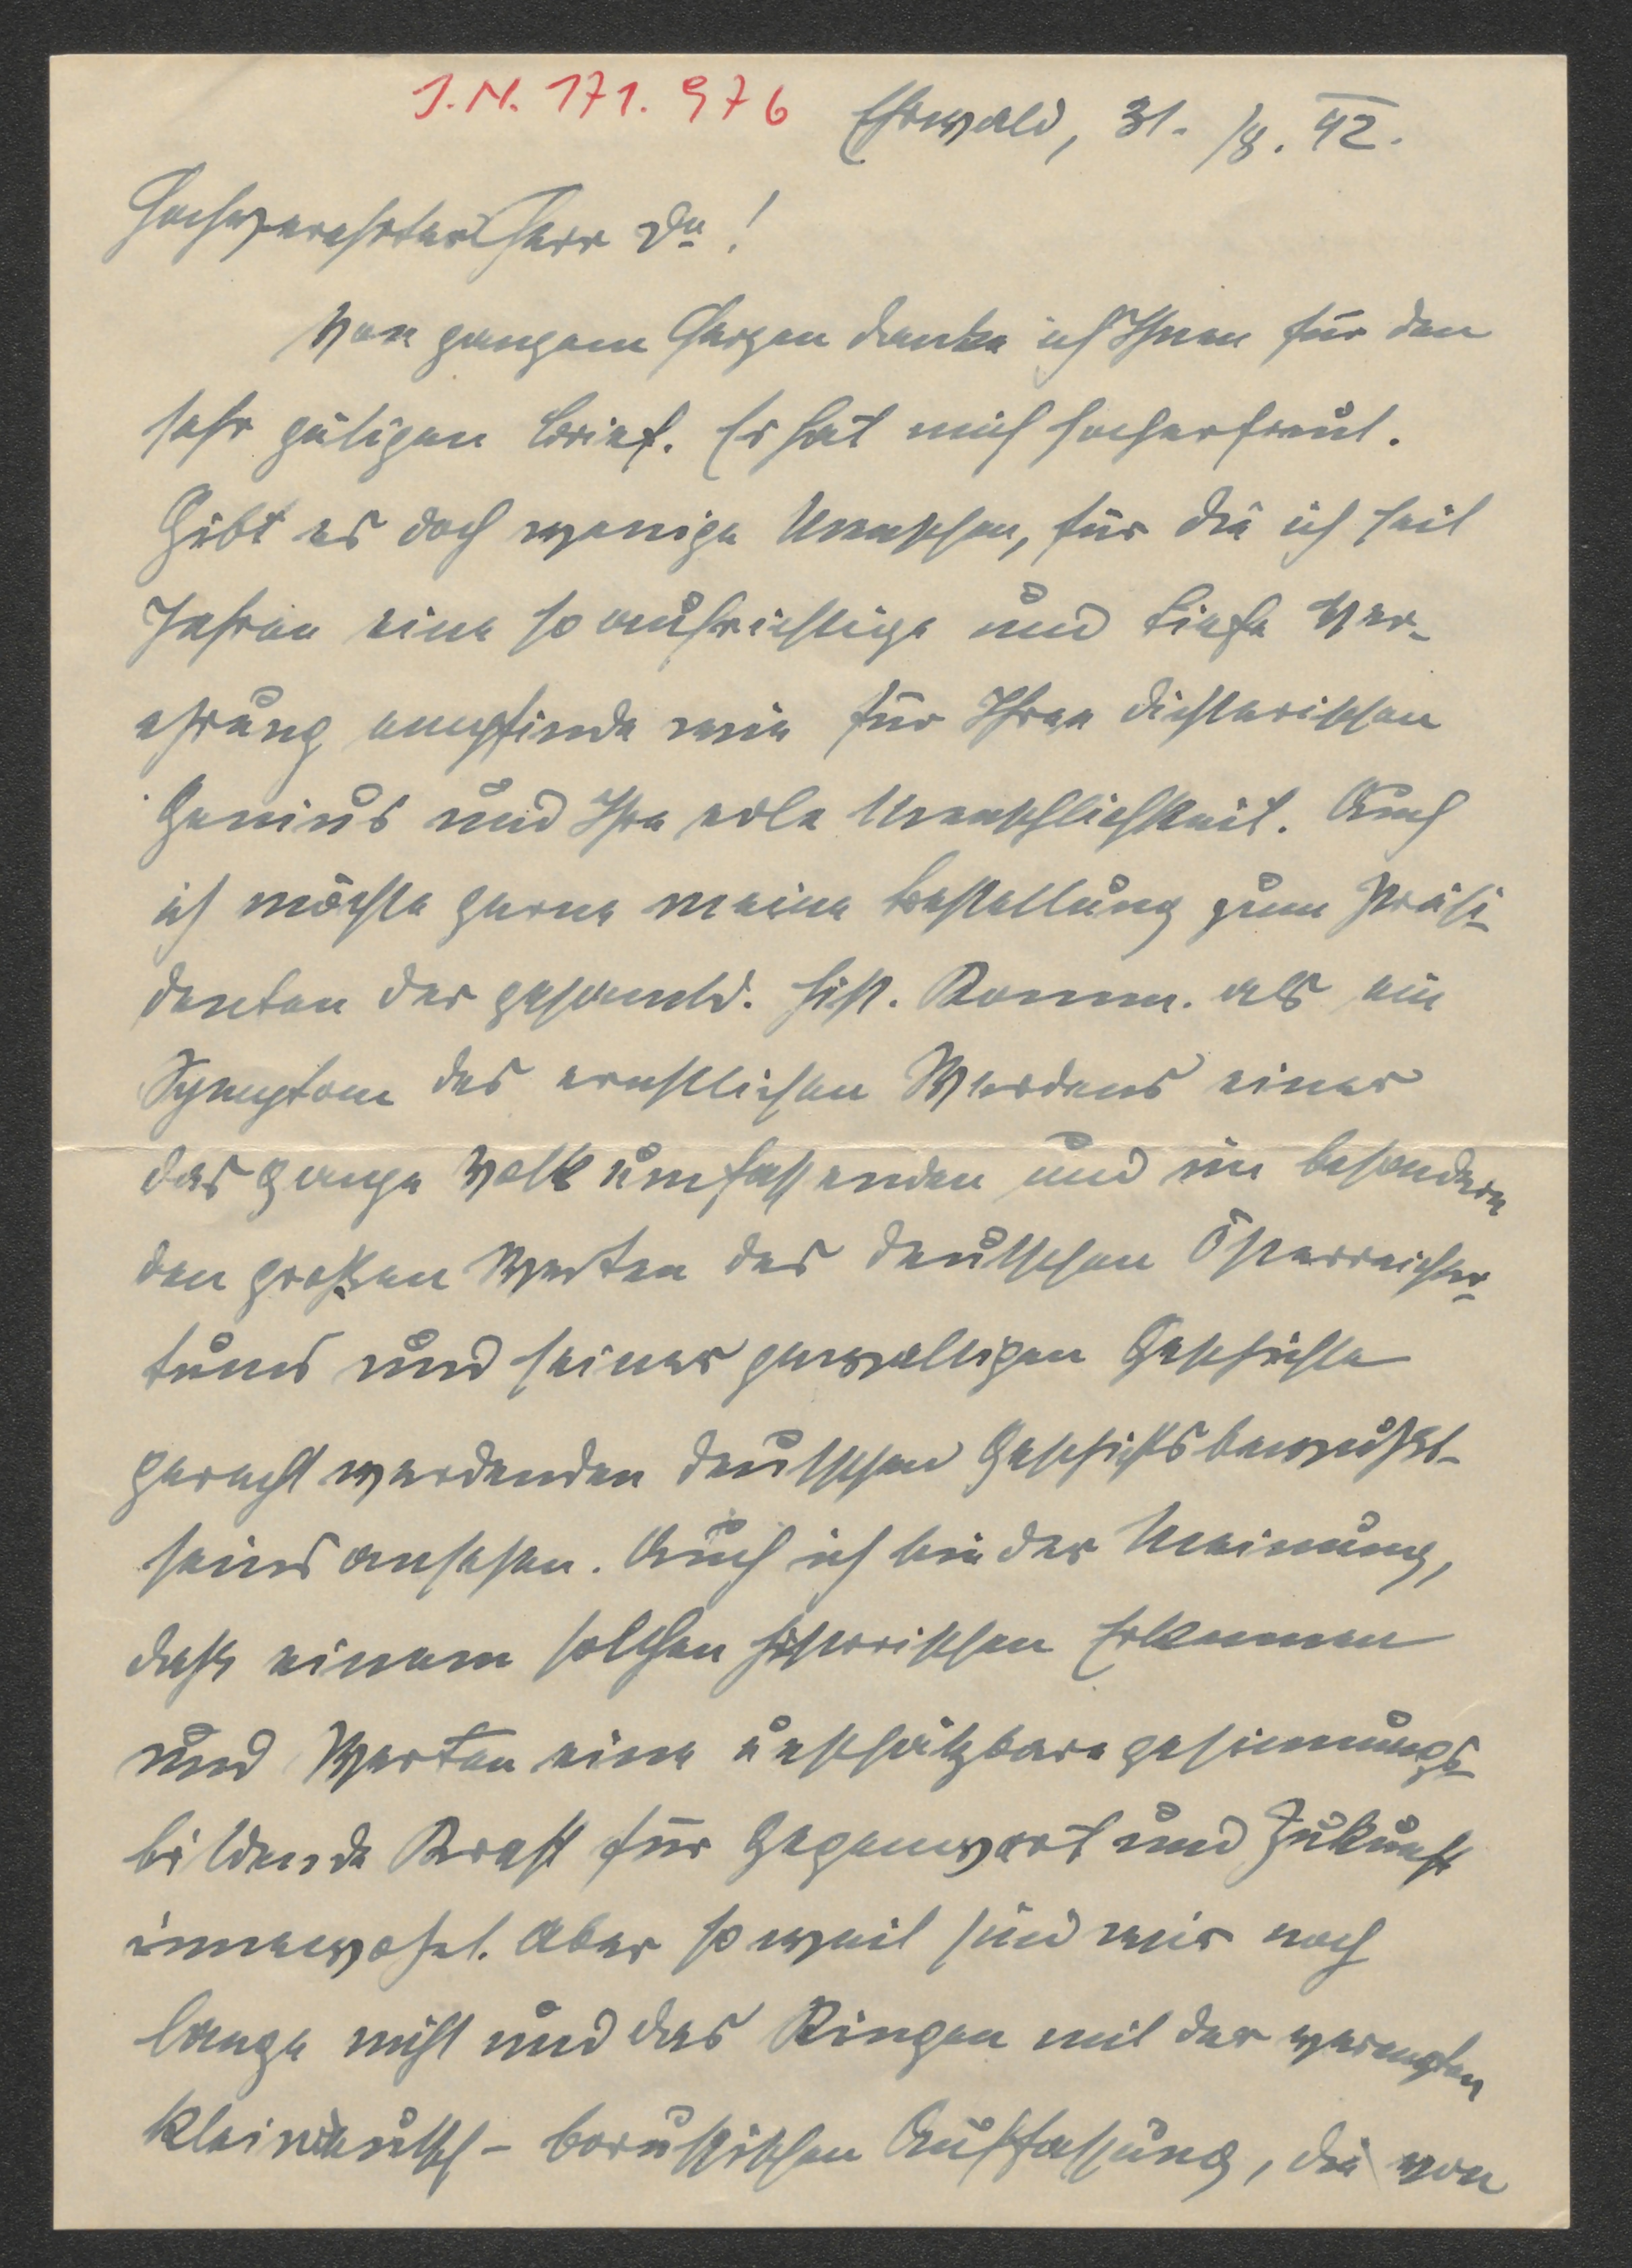 J.N. 171.976
Ehrwald, 31./8. 42.
Hochverehrter Herr Dr!
Von ganzem Herzen danke ich Ihnen für den
sehr gütigen Brief. Er hat mich hocherfreut.
Gibt es doch wenige Menschen, für die ich seit
Jahren eine so aufrichtige und tiefe Ver-
ehrung empfinde wie für Ihren dichterischen
Genius und Ihre edle Menschlichkeit. Auch
ich möchte gerne meine Bestellung zum Präsi-
denten der gesamtd. hist. Komm. als ein
Symptom des ernstlichen Werdens eines
das ganze Volk umfassenden und im besondern
den großen Werten des deutschen Österreicher-
tums und seiner gewaltigen Geschichte
gerecht werdenden deutschen Geschichtsbewußt-
seins ansehen. Auch ich bin der Meinung,
daß einem solchen historischen Erkennen
und Werten eine unschätzbare gesinnungs-
bildende Kraft für Gegenwart und Zukunft
innewohnt. Aber so weit sind wir noch
lange nicht und das Ringen mit der verengten
kleindeutsch-borussischen Auffassung, die von